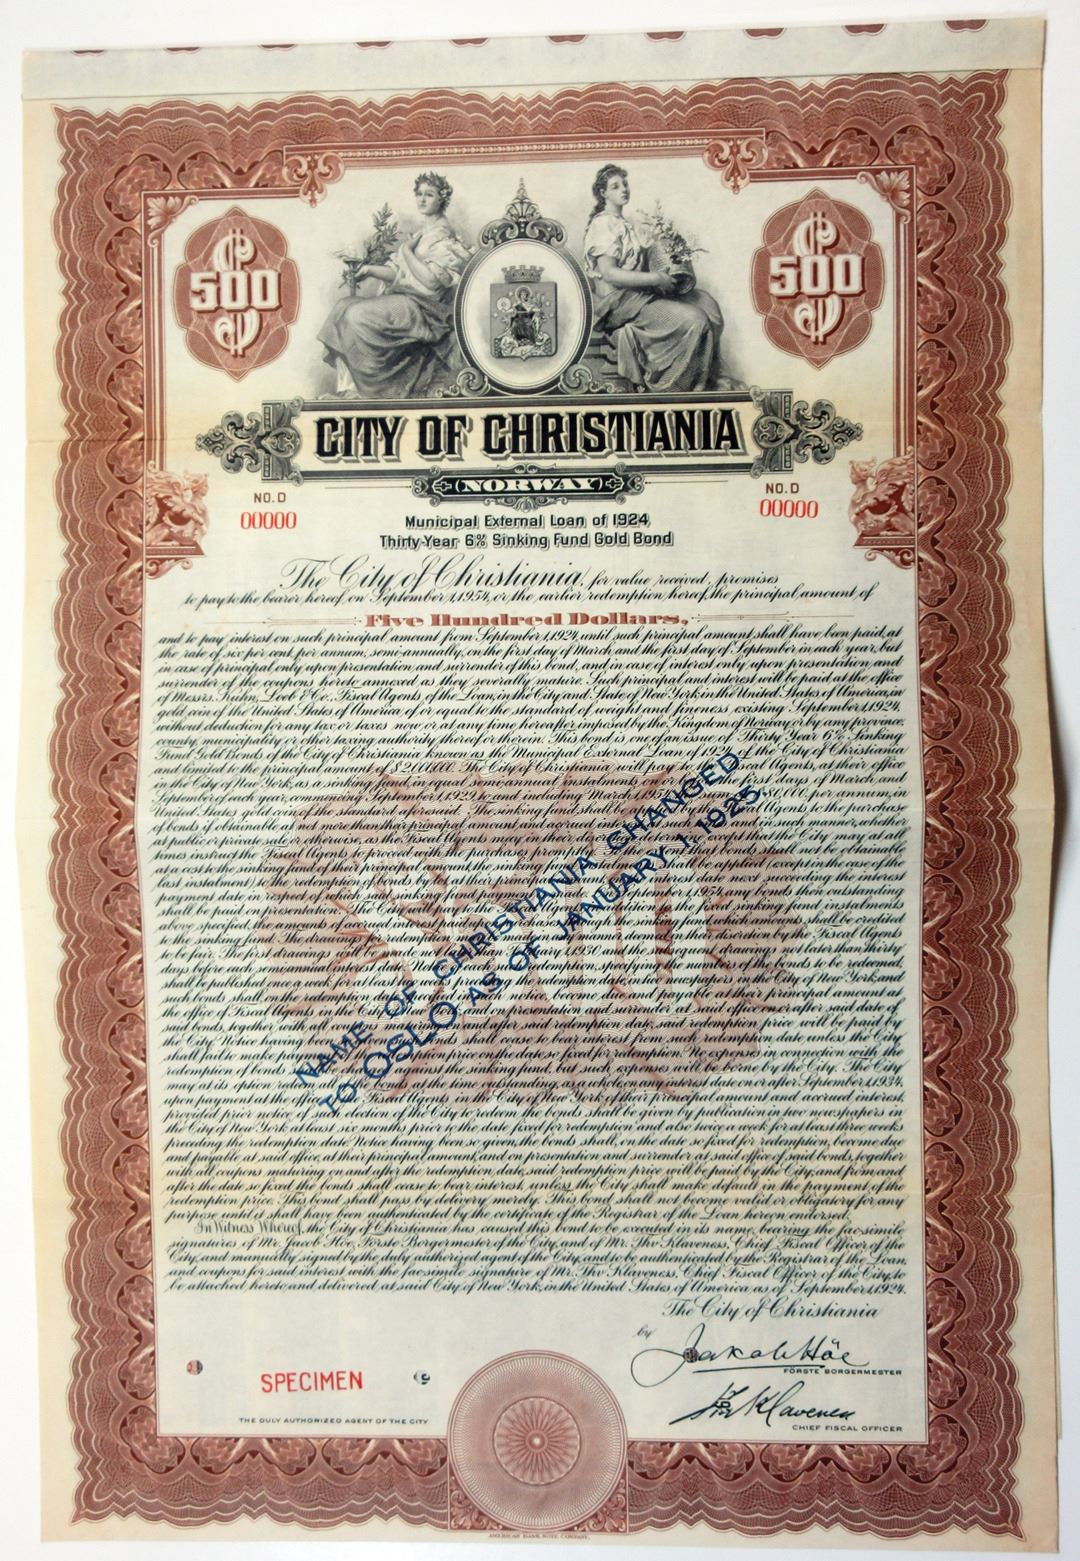 $ 500
$ 500
CITY OF CHRISTIANIA
NORWAY
NO. D
00000
NO. D
00000
Municipal External Loan of 1924
Thirty-Year 6% Sinking Fund Gold Bond
The City of Christiania, for value received, promises
to pay to the bearer hereof, on September 1, 1954, or the earlier redemption hereof, the principal amount of
Five Hundred Dollars,
and to pay interest on such principal amount from September 1, 1924, until such principal amount shall have been paid, at
the rate of six per cent. per annum, semi-annually, on the first day of March and the first day of September in each year, but
in case of principal only upon presentation and surrender of this bond, and in case of interest only upon presentation and
surrender of the coupons hereto annexed as they severally mature. Such principal and interest will be paid at the office
of Messrs. Kuhn, Loeb & Co., Fiscal Agents of the Loan, in the City and State of New York, in the United States of America, in
gold coin of the United States of America, of or equal to the standard of weight and fineness existing September 1, 1924,
without deduction for any tax or taxes now or at any time hereafter imposed by the Kingdom of Norway or by any province,
county, municipality or other taxing authority thereof or therein. This bond is one of an issue of Thirty Year 6% Sinking
Fund Gold Bonds of the City of Christiania known as the Municipal External Loan of 1924 of the City of Christiania
and limited to the principal amount of $2,000,000. The City of Christiania will pay to the Fiscal Agents, at their office
in the City of New York, as a sinking fund, in equal semi-annual instalments, on or before the first days of March and
September of each year, commencing September 1, 1929, to and including March 1, 1954, the sum of $80,000, per annum, in
United States gold coin of the standard aforesaid. The sinking fund shall be applied by the Fiscal Agents to the purchase
of bonds if obtainable at not more than their principal amount and accrued interest, at such prices and in such manner, whether
at public or private sale or otherwise, as the Fiscal Agents may in their discretion determine, except that the City may at all
times instruct the Fiscal Agents to proceed with the purchase promptly. To the extent that bonds shall not be obtainable
at a cost to the sinking fund of their principal amount, the sinking fund instalments shall be applied (except in the case of the
last instalment) to the redemption of bonds by lot at their principal amount, on the interest date next succeeding the interest
payment date in respect of which said sinking fund payment is made. On September 1, 1954, any bonds then outstanding
shall be paid on presentation. The City will pay to the Fiscal Agents, in addition to the fixed sinking fund instalments
above specified, the amounts of accrued interest paid upon purchases through the sinking fund, which amounts shall be credited
to the sinking fund. The drawings for redemption may be made in any manner deemed in their discretion by the Fiscal Agents
to be fair. The first drawings will be made not later than February 1, 1930 and the subsequent drawings not later than thirty
days before each semi-annual interest date. Notice of each such redemption, specifying the numbers of the bonds to be redeemed,
shall be published once a week for at least two weeks preceding the redemption date, in two newspapers in the City of New York, and
such bonds shall, on the redemption date specified in such notice, become due and payable at their principal amount at
the office of Fiscal Agents in the City of New York, and on presentation and surrender at said office on or after said date of
said bonds, together with all coupons maturing on and after said redemption date, said redemption price will be paid by
the City. Notice having been so given, such bonds shall cease to bear interest from such redemption date unless the City
shall fail to make payment of the redemption price on the date so fixed for redemption. No expenses in connection with the
redemption of bonds will be charged against the sinking fund, but such expenses will be borne by the City. The City
may at its option redeem all of the bonds at the time outstanding, as a whole, on any interest date on or after September 1, 1934,
upon payment at the office of the Fiscal Agents in the City of New York of their principal amount and accrued interest,
provided prior notice of such election of the City to redeem the bonds shall be given by publication in two newspapers in
the City of New York at least six months prior to the date fixed for redemption and also twice a week for at least three weeks
preceding the redemption date. Notice having been so given, the bonds shall, on the date so fixed for redemption, become due
and payable at said office, at their principal amount, and on presentation and surrender at said office of said bonds, together
with all coupons maturing on and after the redemption date, said redemption price will be paid by the City, and from and
after the date so fixed the bonds shall cease to bear interest, unless the City shall make default in the payment of the
redemption price. This bond shall pass by delivery merely. This bond shall not become valid or obligatory for any
purpose until it shall have been authenticated by the certificate of the Registrar of the Loan hereon endorsed.
In Witness Whereof, the City of Christiania has caused this bond to be executed in its name, bearing the fac-simile
signatures of Mr. Jacob Höe, Förste Borgermester of the City, and of Mr. Thv. Klaveness, Chief Fiscal Officer of the
City, and manually signed by the duly authorized agent of the City, and to be authenticated by the Registrar of the Loan,
and coupons for said interest with the fac-simile signature of Mr. Thv. Klaveness, Chief Fiscal Officer of the City, to
be attached hereto and delivered at said City of New York, in the United States of America, as of September 1, 1924.
NAME OF CHRISTIANIA CHANGED
TO OSLO AS OF JANUARY 1, 1925.
The City of Christiania
by
Jakob Höe
FÖRSTE BORGERMESTER
Thv Klaveness
CHIEF FISCAL OFFICER
SPECIMEN
THE DULY AUTHORIZED AGENT OF THE CITY
AMERICAN BANK NOTE COMPANY.